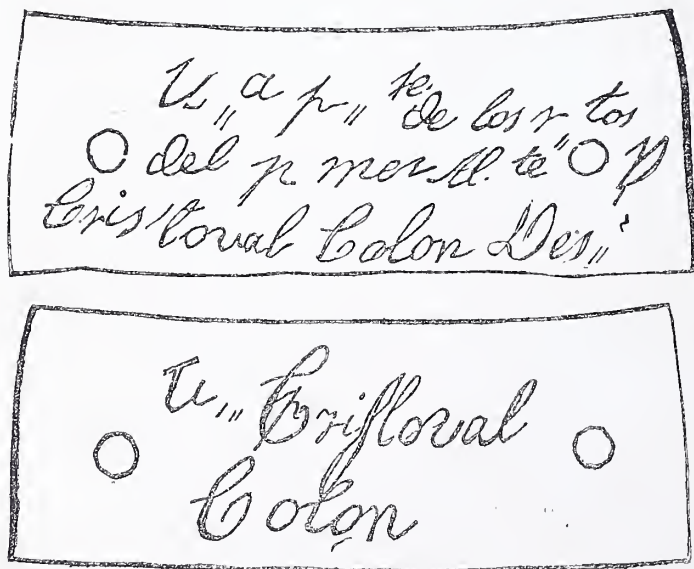 U,, a p,, te. de los r,, tos
del p. mer Al. te D
Cris,, toval Colon Des,,
U,,, Cristoval
Colon